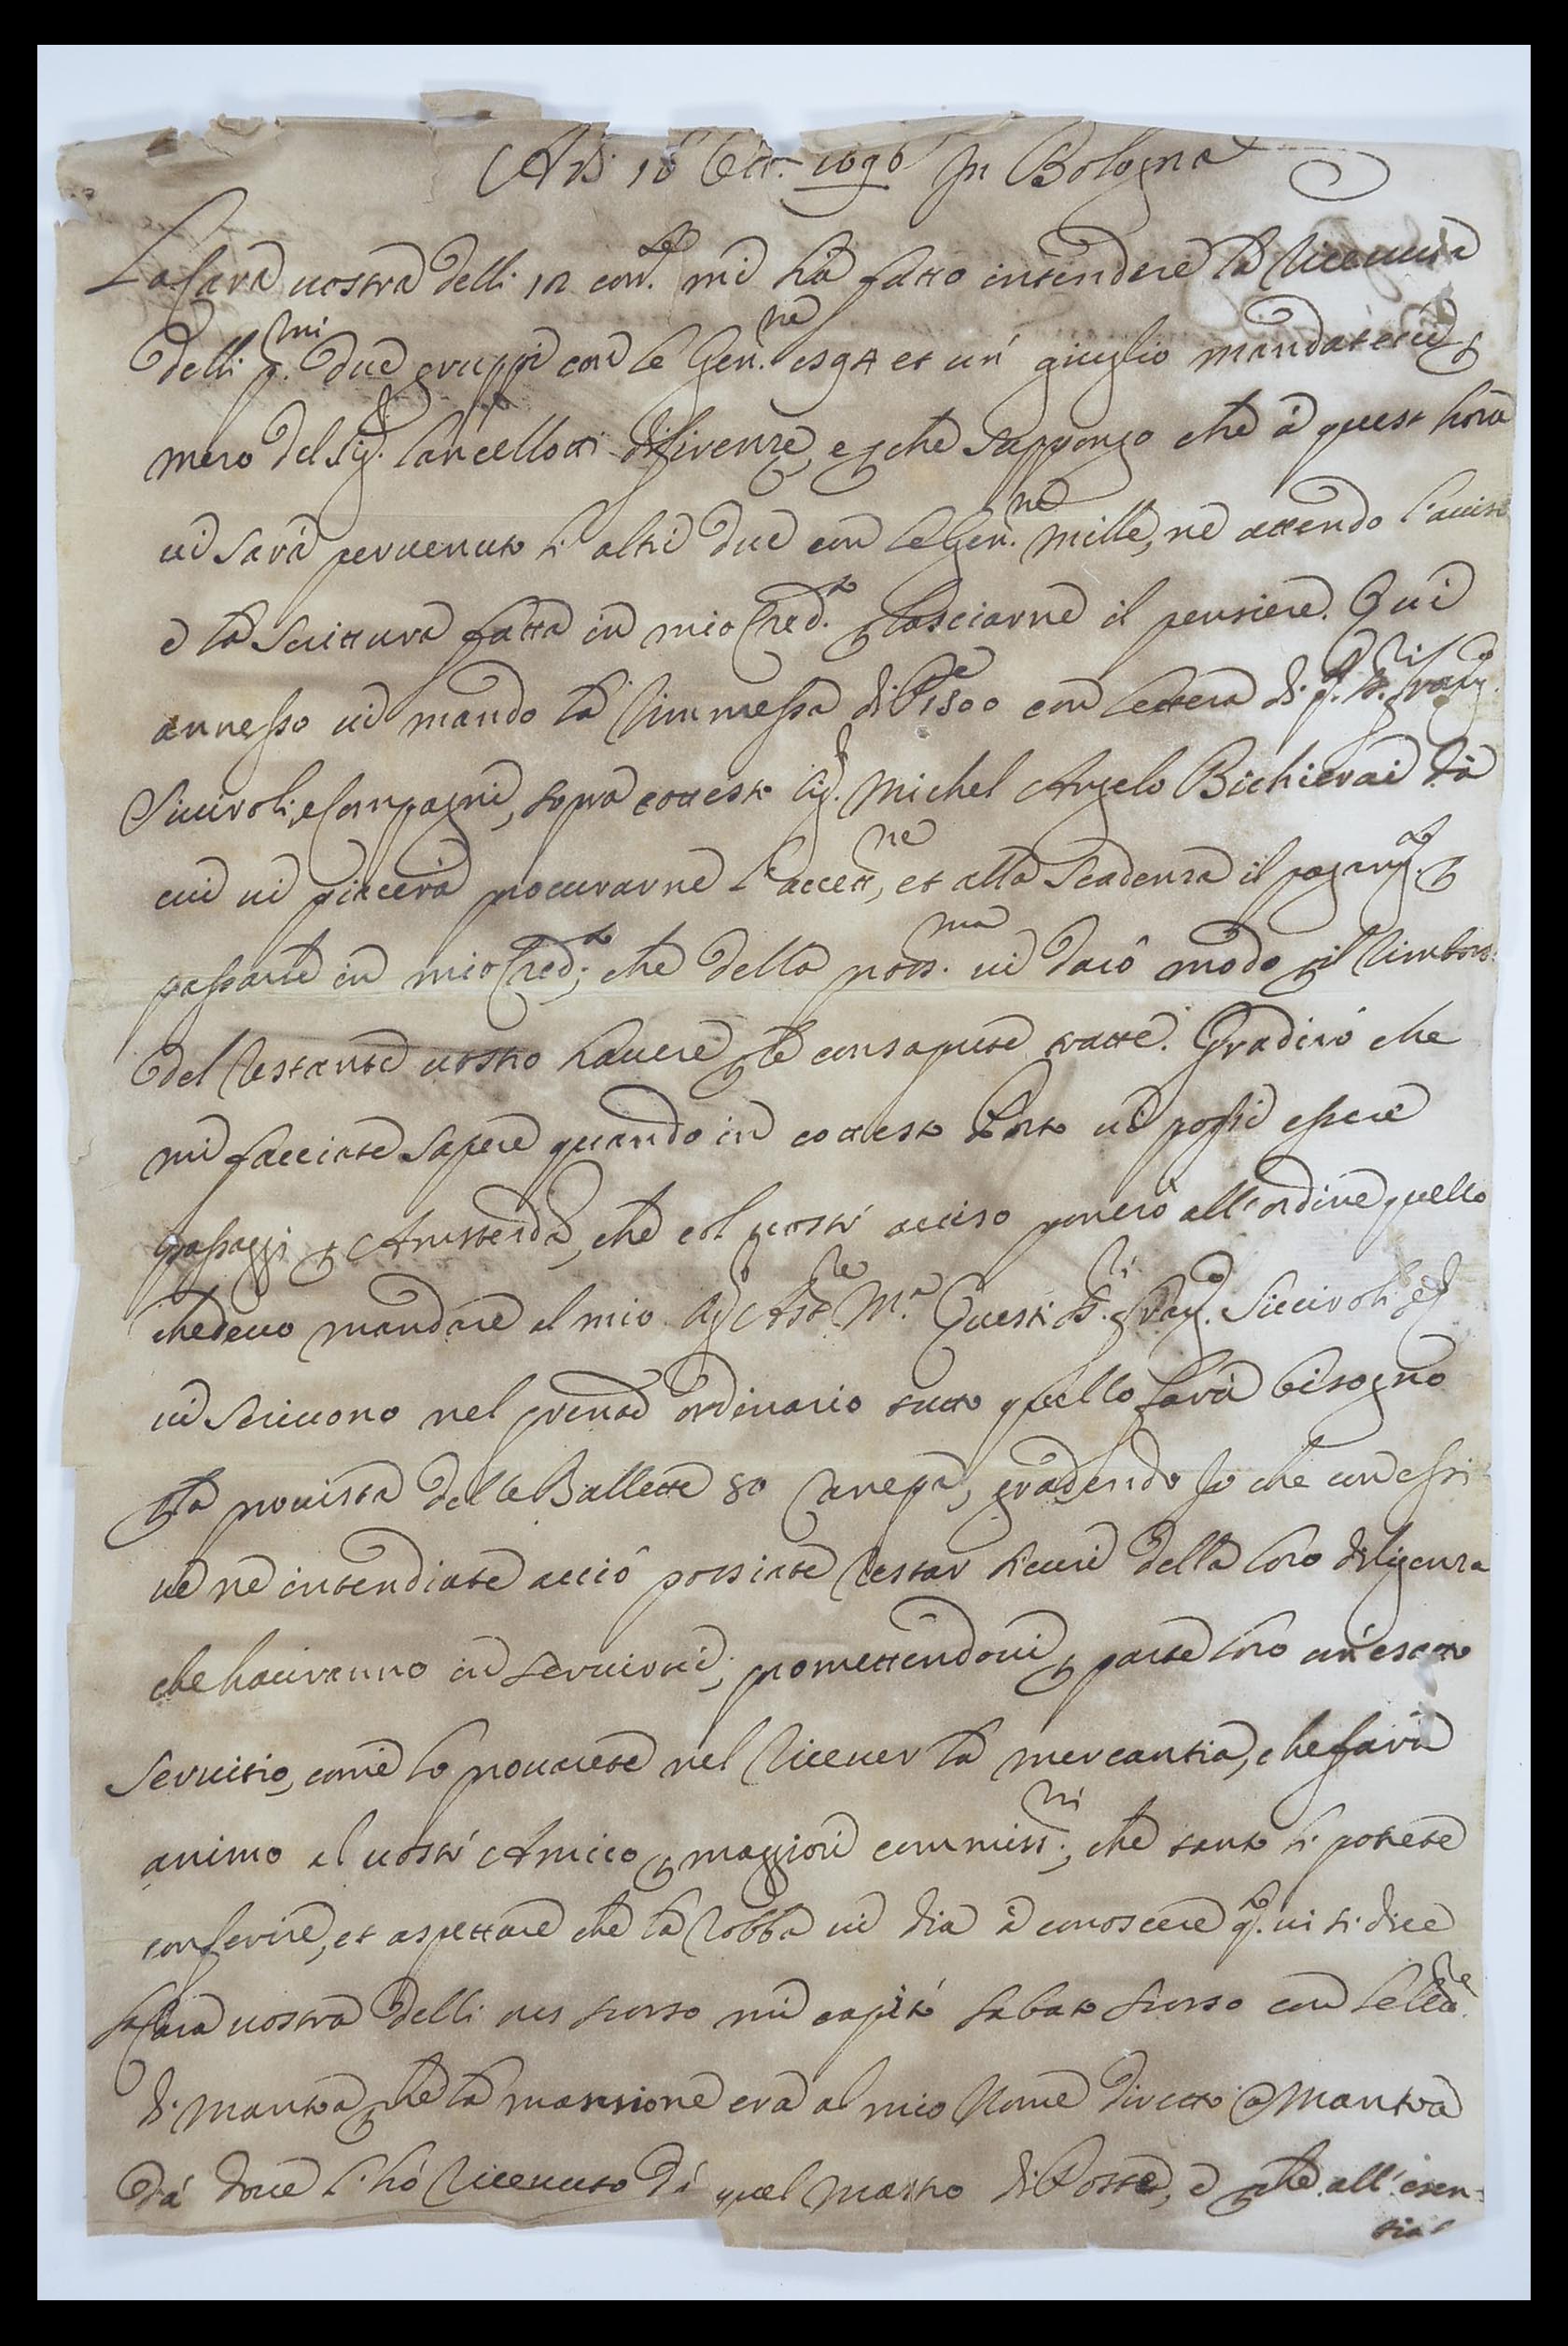 Adi 18 Ott.re 1696 In Bologna
La Cara vostra delli 12 corr.te mi hà fatto intendere la riceuuta
delli p.mi due gruppi con le Gen.ne et un' giuglio mandateui p
mezo del Sig.r Lancellotti di firenze, e p che suppongo che à quest hora
ui sarà peruenuto li altri due con le Gen.ne mille, ne attendo l'auiso
e la scrittura fatta in mio Cred.to p lasciarne il pensiere. Qui
annesso ui mando la rimmessa di P.e 1500 con lettera di q.ti SS.ri
Sicciroli, e Compagni, sopra cottesto Sig.r Michel Angelo Bichierai dà
cui ui piacerà procurarne l'accett.ne, et alla scadenza il pagam.to p
passarle in mio Cred.to, che della pross.ma ui darò modo p il rimbors:
del restante uostro hauere p le consapute tratte. Gradirò che
mi facciate sapere quando in cottesto Porto ui possi essere
passaggi p Amsterdã, che col uostr' auiso ponerò all'ordine quello
che deuo mandare al mio Sig.r M.a Questi SS.ri Sicciroli
ui scriuono nel presnte ordinario tutto quello sarà bisogno
p la prouista delle Ballette 80 Canepa, gradendo Io che con essi
ue ne intendiate acciò possiate restar sicuri della loro diligenza
che hauranno in seruirui; promettendoui p parte loro un' esatto
seruitio, come lo prouarete nel riceuer la mercantia, che farà
animo al uostr' Amico p maggiori commiss.ni, che tanto li potrete
conferire, et aspettare che la robba ui dia à conoscere q.to ui si dice
la Cara uostra delli scorso mi capitò sabato scorso con le
di Mantoa p che la mansione era al mio Nome diretto à Mantoa
dà doue l'hò riceuuto dà quel Mastro di Poste, e p che all'esen:
tia